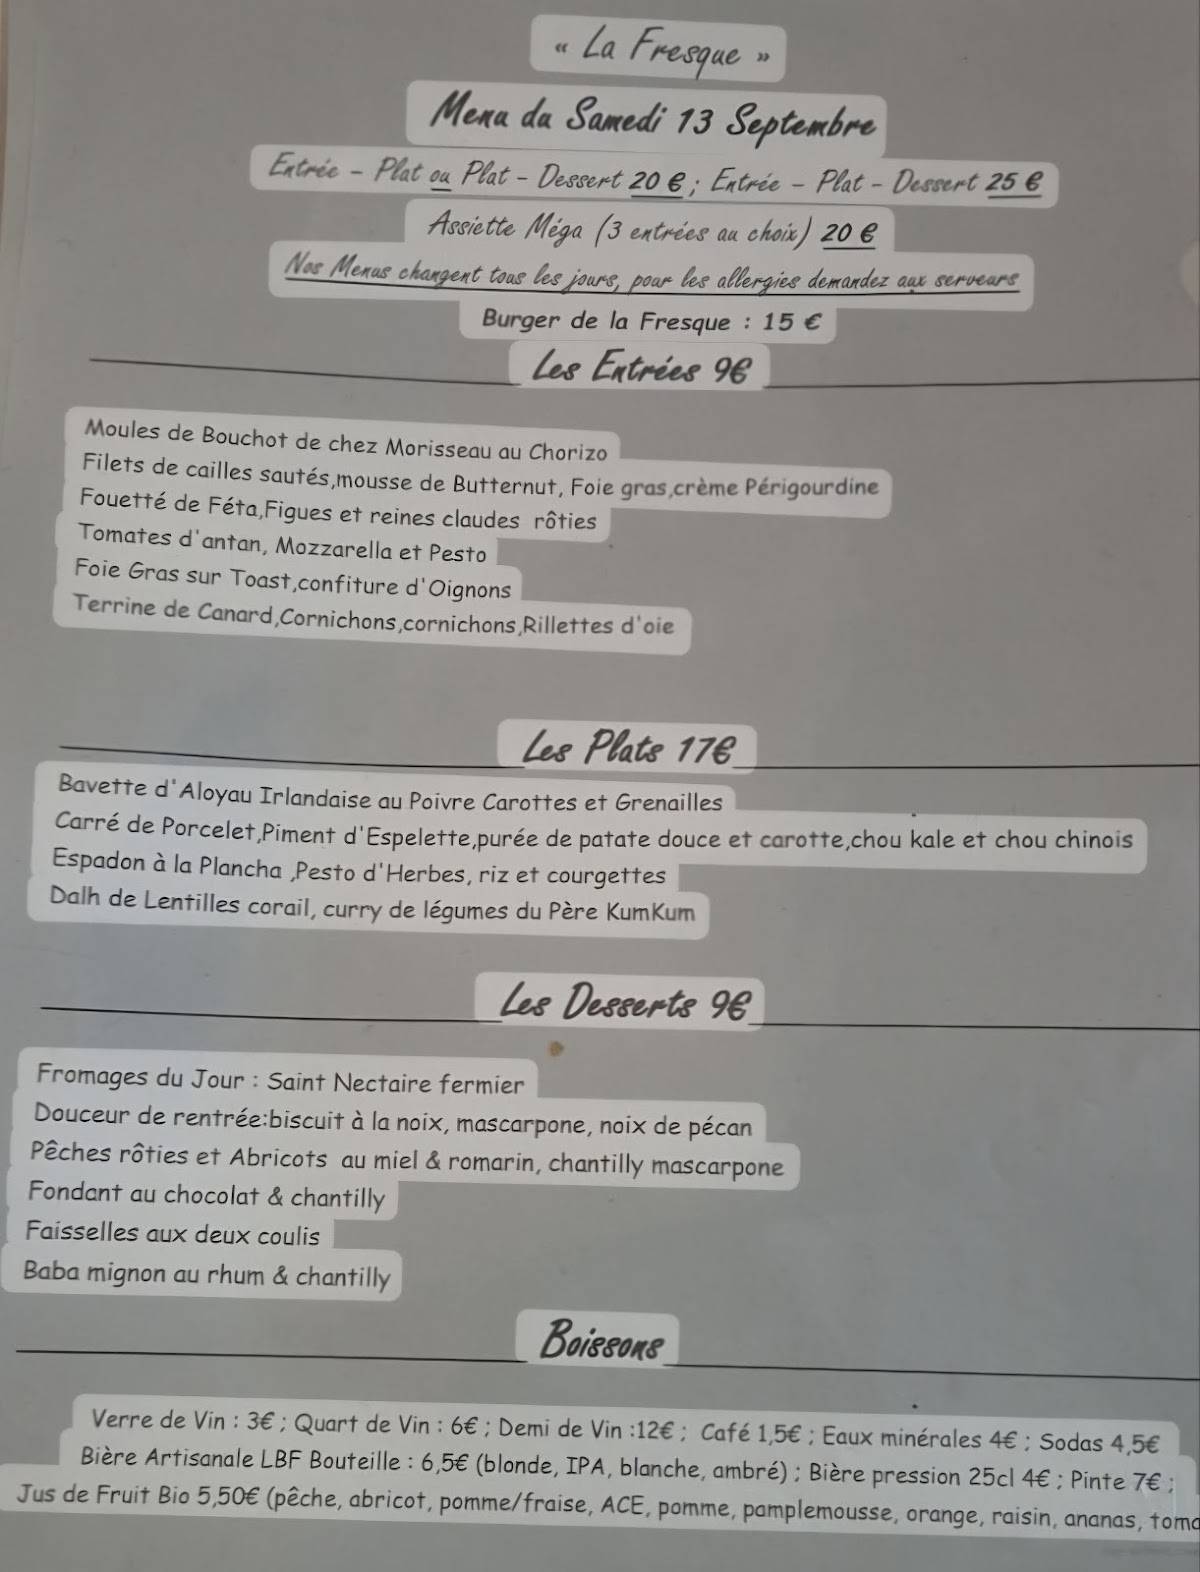 « La Fresque »
Menu du Samedi 13 Septembre
Entrée - Plat ou Plat - Dessert 20 € ; Entrée - Plat - Dessert 25 €
Assiette Méga (3 entrées au choix) 20 €
Nos Menus changent tous les jours, pour les allergies demandez aux serveurs
Burger de la Fresque : 15 €
Les Entrées 9€
Moules de Bouchot de chez Morisseau au Chorizo
Filets de cailles sautés,mousse de Butternut, Foie gras,crème Périgourdine
Fouetté de Féta,Figues et reines claudes rôties
Tomates d'antan, Mozzarella et Pesto
Foie Gras sur Toast,confiture d'Oignons
Terrine de Canard,Cornichons,cornichons,Rillettes d'oie
Les Plats 17€
Bavette d'Aloyau Irlandaise au Poivre Carottes et Grenailles
Carré de Porcelet,Piment d'Espelette,purée de patate douce et carotte,chou kale et chou chinois
Espadon à la Plancha ,Pesto d'Herbes, riz et courgettes
Dalh de Lentilles corail, curry de légumes du Père KumKum
Les Desserts 9€
Fromages du Jour : Saint Nectaire fermier
Douceur de rentrée:biscuit à la noix, mascarpone, noix de pécan
Pêches rôties et Abricots au miel & romarin, chantilly mascarpone
Fondant au chocolat & chantilly
Faisselles aux deux coulis
Baba mignon au rhum & chantilly
Boissons
Verre de Vin : 3€ ; Quart de Vin : 6€ ; Demi de Vin :12€ ; Café 1,5€ ; Eaux minérales 4€ ; Sodas 4,5€
Bière Artisanale LBF Bouteille : 6,5€ (blonde, IPA, blanche, ambré) ; Bière pression 25cl 4€ ; Pinte 7€ ;
Jus de Fruit Bio 5,50€ (pêche, abricot, pomme/fraise, ACE, pomme, pamplemousse, orange, raisin, ananas,